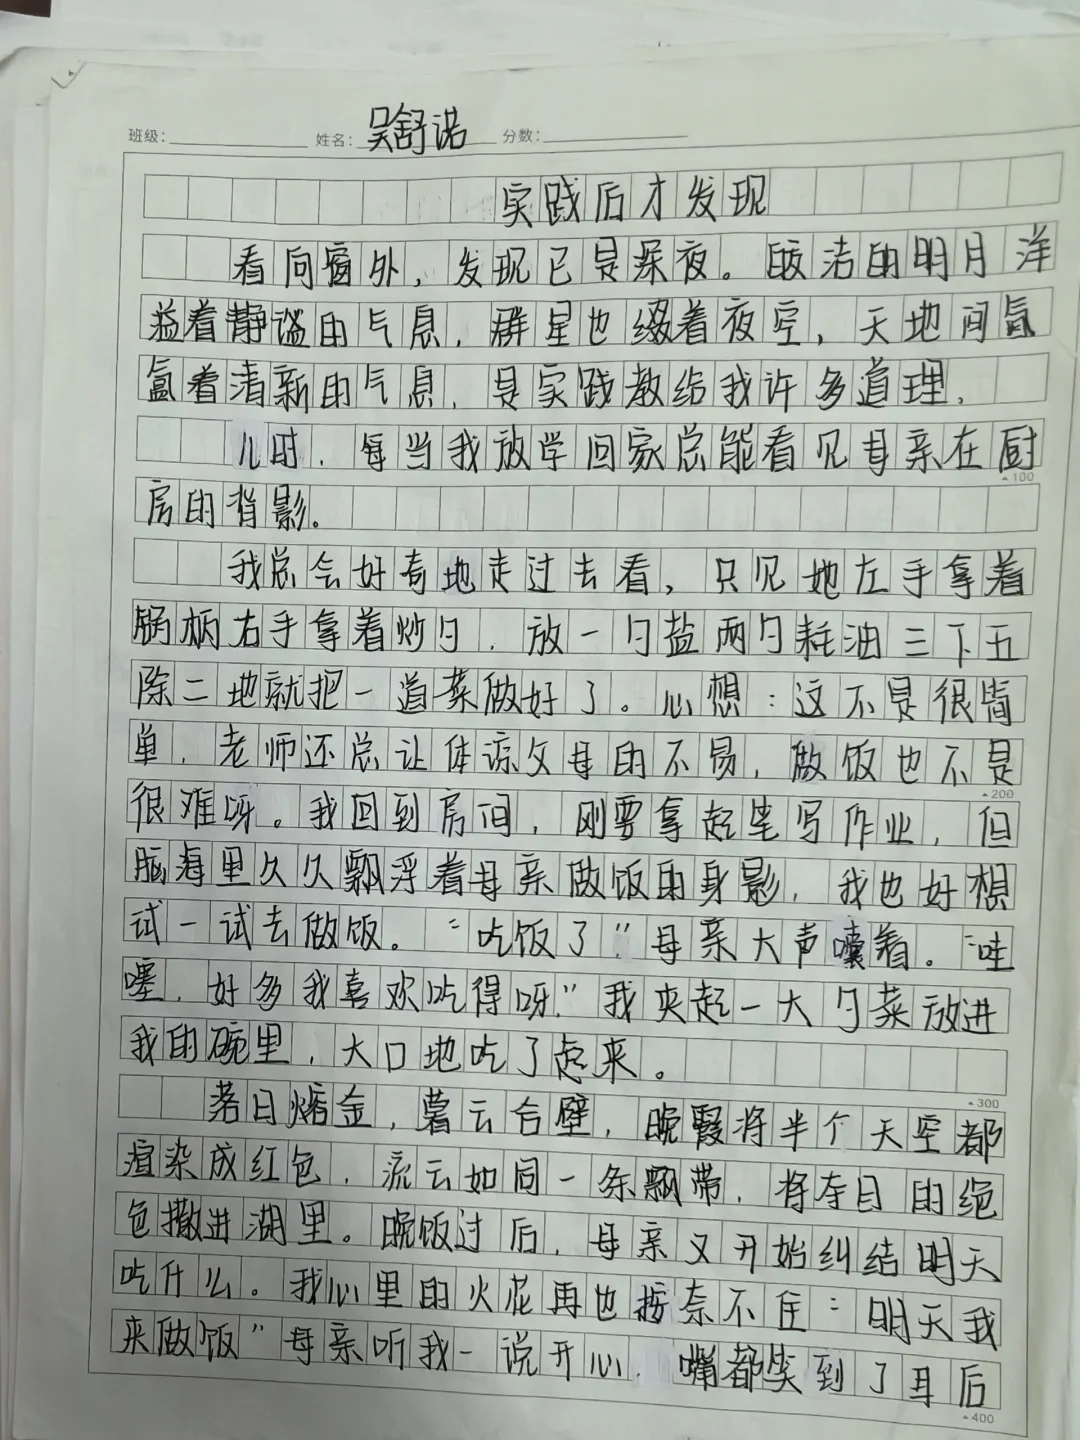 班级： 姓名：吴舒诺 分数：
实践后才发现
看向窗外，发现已是深夜。皎洁的明月洋
溢着静谧的气息，群星也缀着夜空，天地间氤
氲着清新的气息，是实践教给我许多道理。
儿时，每当我放学回家总能看见母亲在厨
▲100
房的背影。
我总会好奇地走过去看，只见她左手拿着
锅柄右手拿着炒勺，放一勺盐两勺耗油三下五
除二地就把一道菜做好了。心想：这不是很简
单，老师还总让体谅父母的不易，做饭也不是
▲200
很难呀。我回到房间，刚要拿起笔写作业，但
脑海里久久飘浮着母亲做饭的身影，我也好想
试一试去做饭。“吃饭了”母亲大声嚷着。“哇
噻，好多我喜欢吃得呀”我夹起一大勺菜放进
我的碗里，大口地吃了起来。
▲300
落日熔金，暮云合壁，晚霞将半个天空都
渲染成红色，流云如同一条飘带，将夺目的绝
色撒进湖里。晚饭过后，母亲又开始纠结明天
吃什么。我心里的火花再也按奈不住“明天我
来做饭”母亲听我一说开心，嘴都笑到了耳后
▲400